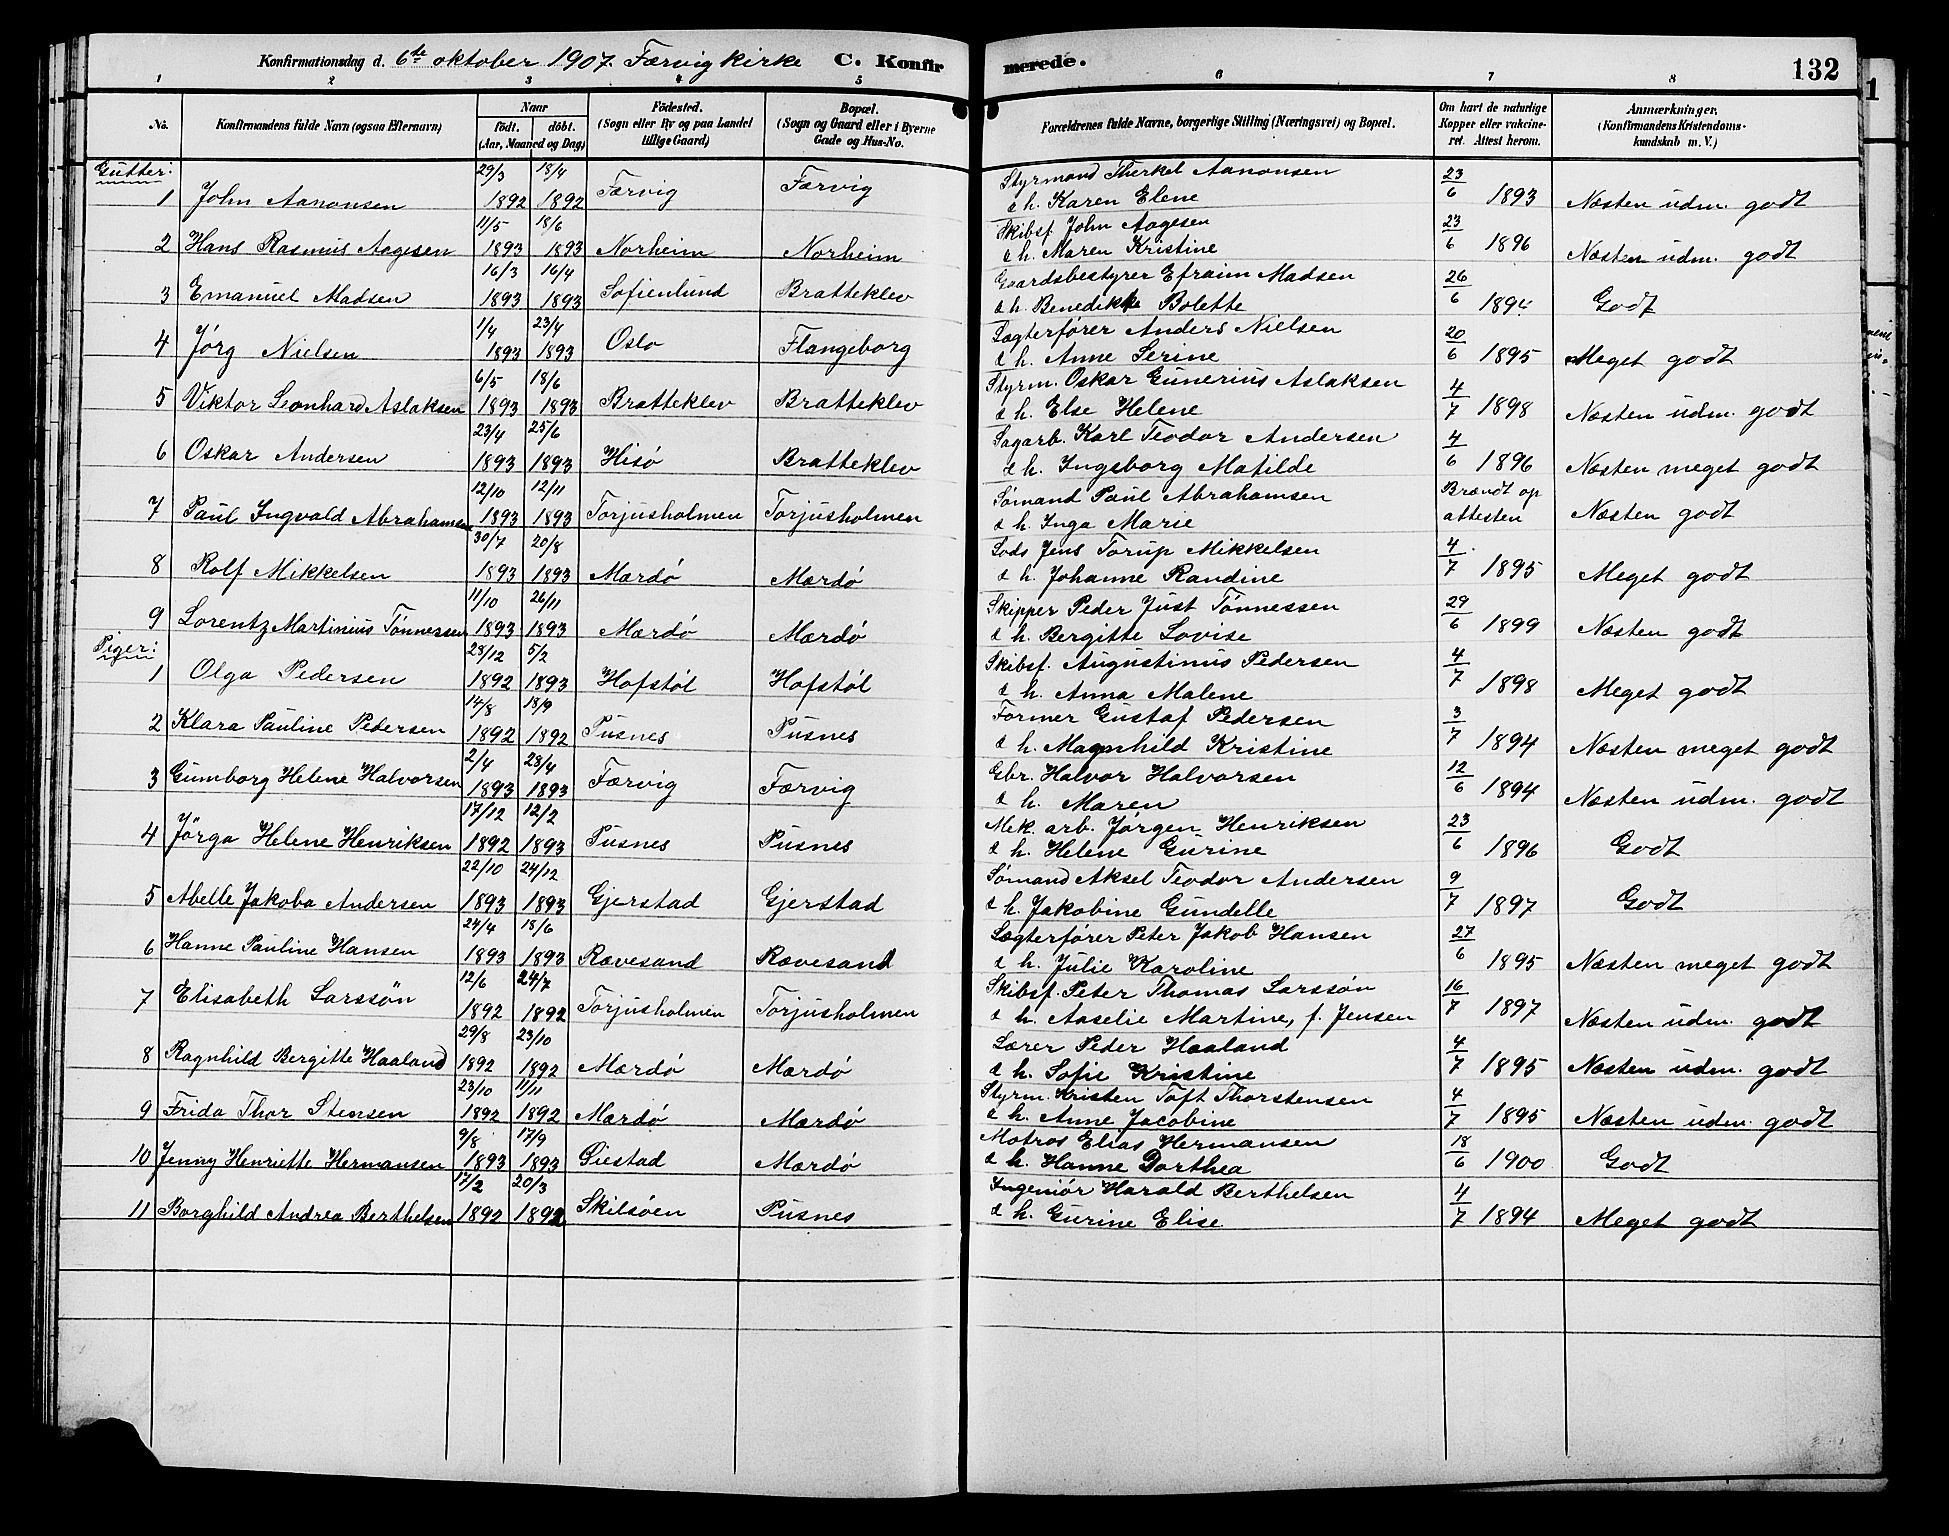 Konfirmationsdag d. 6te oktober 1907. Færvig kirke C. Konfirmerede. 132
1 2 3 4 5 6 7 8
No. Konfirmandens fulde Navn (ogsaa Efternavn) Naar födt. döbt. (Aar, Maaned og Dag) Födested. (Sogn eller By og paa Landet tillige Gaard) Bopæl. (Sogn og Gaard eller i Byerne Gade og Hus-No. Forældrenes fulde Navne, borgerlige Stilling (Næringsvei) og Bopæl. Om havt de naturlige Kopper eller vakcineret. Attest herom. Anmærkninger, (Konfirmandens Kristendomskundskab m. V.)
Gutter:
1 John Aanonsen 29/3 1892 18/4 1892 Færvig Færvig Styrmand Therkel Aanonsen & h. Karen Elene 23/6 1893 Næsten udm. godt
2 Hans Rasmus Aagesen 11/5 1893 18/6 1893 Norheim Norheim Skibsf. John Aagesen & h. Maren Kristine 23/6 1896 Næsten udm. godt
3 Emanuel Madsen 16/3 1893 16/4 1893 Sofienlund Bratteklev Gaardsbestyrer Efraim Madsen & h. Benedikte Bolette 26/6 1894 Godt
4 Jørg Nielsen 1/4 1893 23/4 1893 Oslo Flangeborg Lægterfører Anders Nielsen & h. Anne Serine 20/6 1895 Meget godt
5 Viktor Leonhard Aslaksen 6/5 1893 18/6 1893 Bratteklev Bratteklev Styrm. Oskar Gunerius Aslaksen & h. Else Helene 4/7 1898 Næsten udm. godt
6 Oskar Andersen 23/4 1893 25/6 1893 Hisø Bratteklev Sagarb. Karl Teodor Andersen & h. Ingeborg Matilde 4/6 1896 Næsten meget godt
7 Paul Ingvald Abrahamsen 12/10 1893 12/11 1893 Torjusholmen Torjusholmen Sømand Paul Abrahamsen & h. Inga Marie Brændt op attesten Næsten godt
8 Rolf Mikkelsen 30/7 1893 20/8 1893 Mærdø Mærdø Lods Jens Torup Mikkelsen & h. Johanne Randine 4/7 1895 Meget godt
9 Lorentz Martinius Tønnessen 11/10 1893 26/11 1893 Mærdø Mærdø Skipper Peder Just Tønnessen & h. Bergitte Lovise 29/6 1899 Næsten godt
Piger:
1 Olga Pedersen 28/12 1892 5/2 1893 Hofstøl Hofstøl Skibsf. Augustinus Pedersen & h. Anna Malene 4/7 1898 Meget godt
2 Klara Pauline Pedersen 14/8 1892 18/9 1892 Pusnes Pusnes Former Gustaf Pedersen & h. Magnhild Kristine 3/7 1894 Næsten meget godt
3 Gumborg Helene Halvorsen 2/4 1893 23/4 1893 Færvig Færvig Gbr. Halvor Halvorsen & h. Maren 12/6 1894 Næsten udm. godt
4 Jørga Helene Henriksen 17/12 1892 12/2 1893 Pusnes Pusnes Mek. arb. Jørgen Henriksen & h. Helene Gurine 23/6 1896 Godt
5 Abelle Jakoba Andersen 22/10 1893 24/12 1893 Gjerstad Gjerstad Sømand Aksel Teodor Andersen & h. Jakobine Gundelle 9/7 1897 Godt
6 Hanne Pauline Hansen 24/4 1893 18/6 1893 Rævesand Rævesand Lægterfører Peter Jakob Hansen & h. Julie Karoline 27/6 1895 Næsten meget godt
7 Elisabeth Larssøn 12/6 1892 24/7 1892 Torjusholmen Torjusholmen Skibsf. Peter Thomas Larssøn & h. Aaselie Martine, f. Jensen 16/7 1897 Næsten udm. godt
8 Ragnhild Bergitte Haaland 29/8 1892 23/10 1892 Mærdø Mærdø Lærer Peder Haaland & h. Sofie Kristine 4/7 1895 Næsten udm. godt
9 Frida Thor Stensen 23/10 1892 11/11 1892 Mærdø Mærdø Styrm. Kristen Toft Thorstensen & h. Anne Jacobine 4/7 1895 Næsten udm. godt
10 Jenny Henriette Hermansen 9/8 1893 17/9 1893 Øiestad Mærdø Matros Elias Hermansen & h. Hanne Dorthea 18/6 1900 Godt
11 Borghild Andrea Berthelsen 17/2 1892 20/3 1892 Skilsøen Pusnes Ingeniør Harald Berthelsen & h. Gurine Elise 4/7 1894 Meget godt